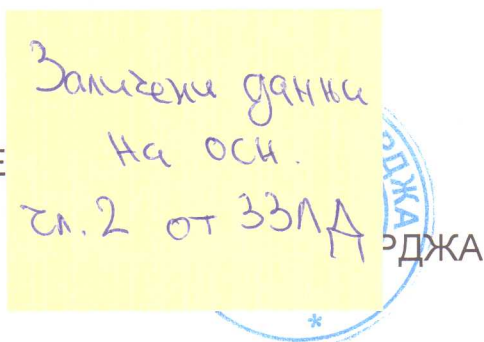 Заличени данни
на осн.
чл. 2 от ЗЗЛД
РДЖА
РДЖА